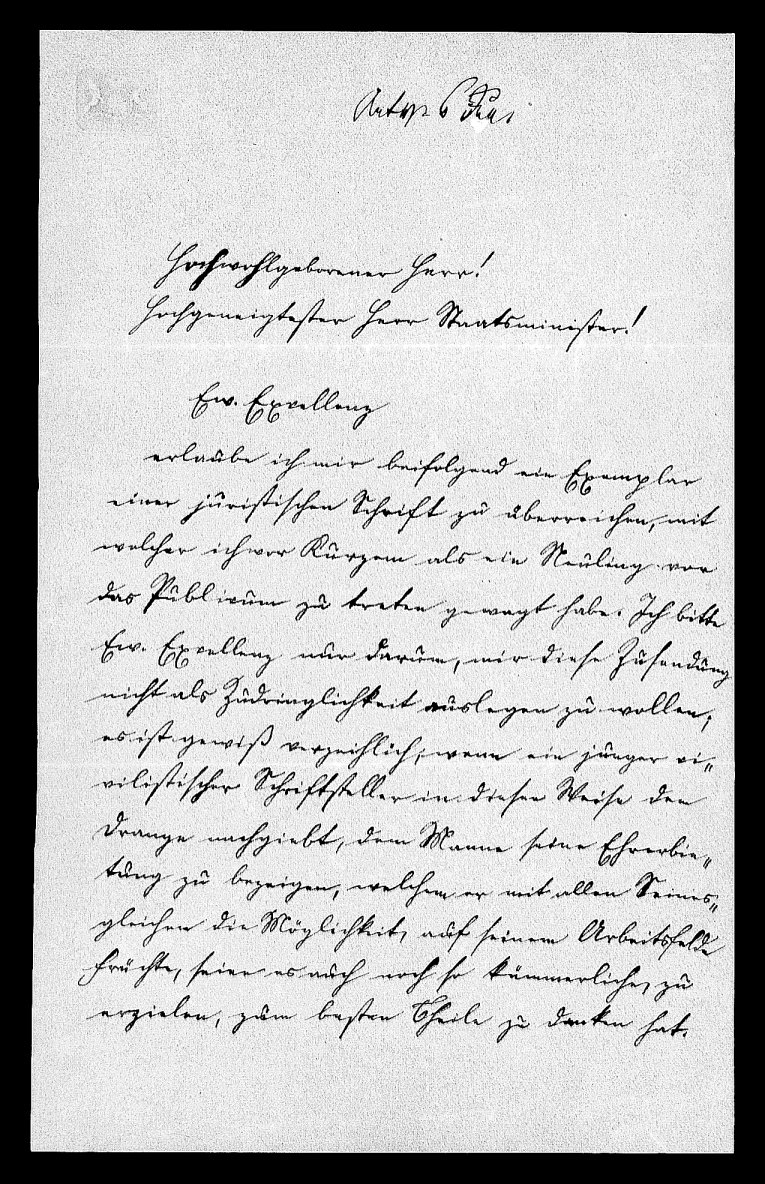 Antw. 6 Juni
Hochwohlgeborener Herr!
Hochgeneigtester Herr Staatsminister!
Ew. Excellenz
erlaube ich mir beifolgend ein Exemplar
einer juristischen Schrift zu überreichen, mit
welcher ich vor Kurzem als ein Neuling vor
das Publicum zu treten gewagt habe. Ich bitte
Ew. Excellenz nur darum, mir diese Zusendung
nicht als Zudringlichkeit auslegen zu wollen;
es ist gewiß verzeihlich, wenn ein junger ci-
vilistischer Schriftsteller in dieser Weise dem
Drange nachgiebt, dem Manne seine Ehrerbie-
tung zu bezeigen, welchem er mit allen Seines-
gleichen die Möglichkeit, auf seinem Arbeitsfelde
Früchte, seien es auch noch so kümmerliche, zu
erzielen, zum besten Theile zu danken hat.